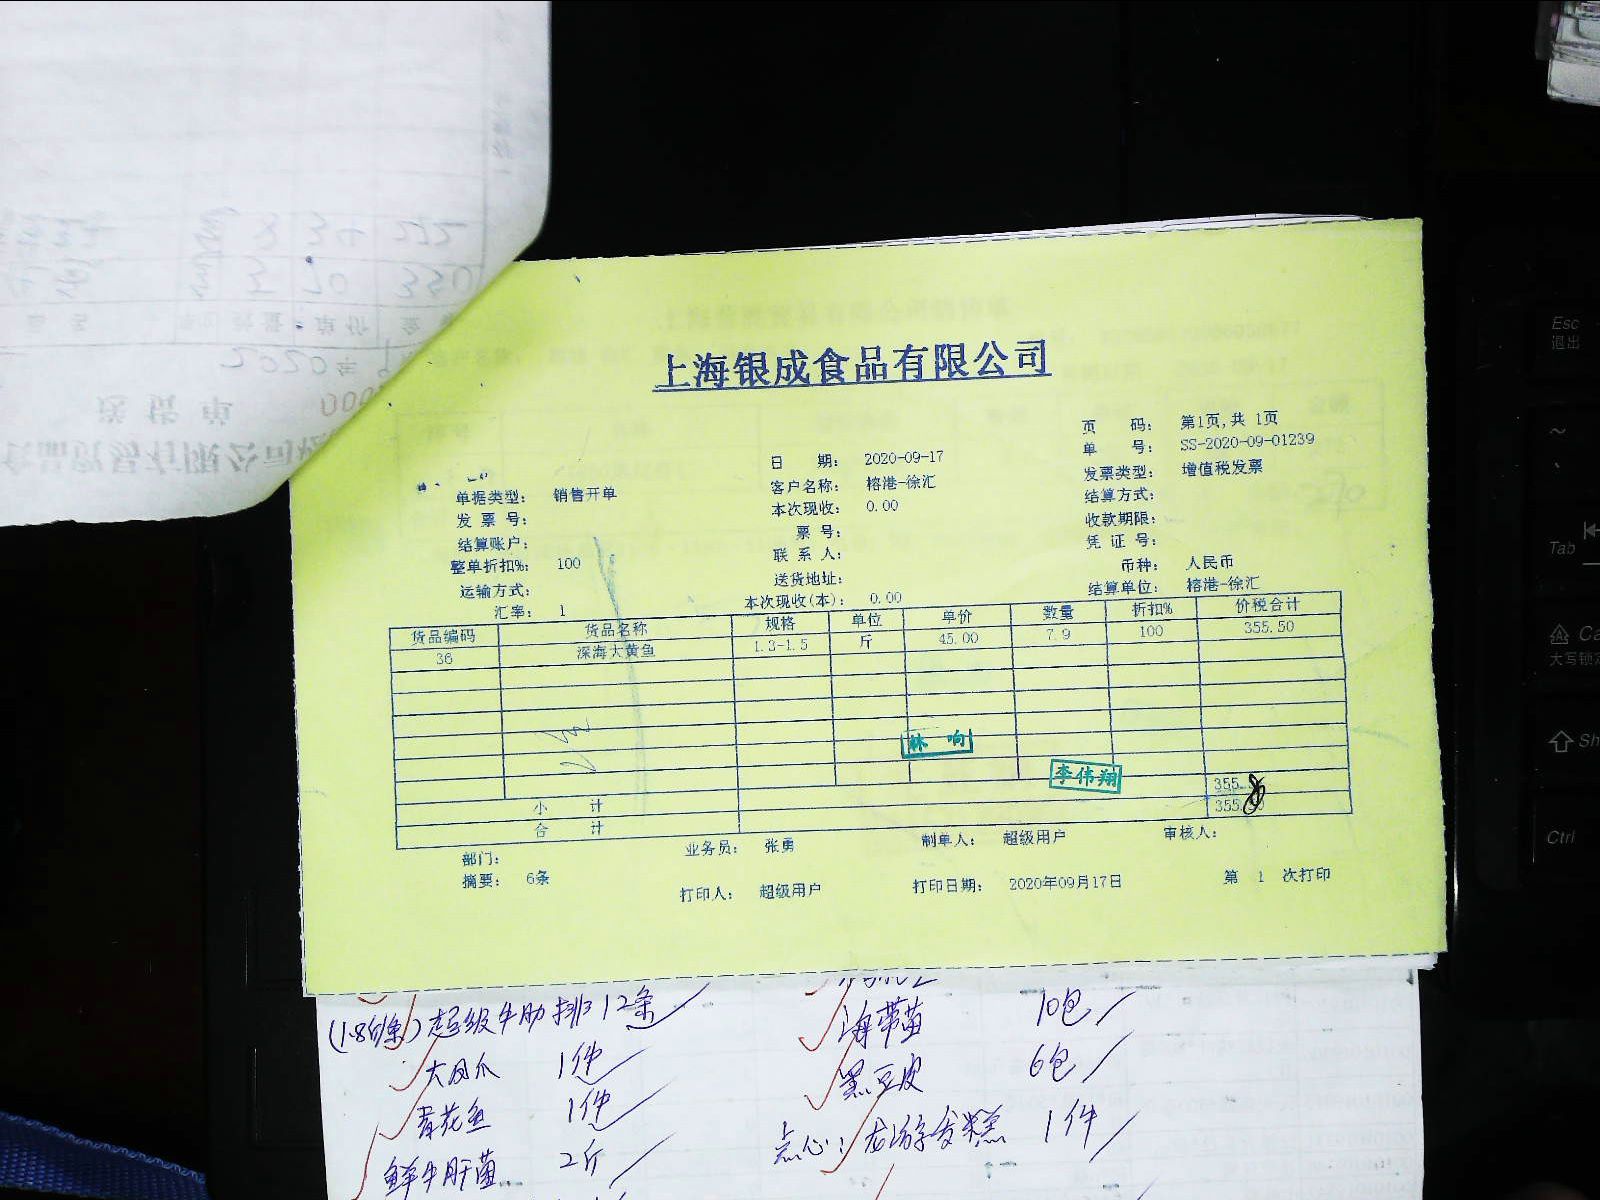 上海银成食品有限公司
页 码： 第1页,共 1页
日 期： 2020-09-17 单 号： SS-2020-09-01239
单据类型： 销售开单 客户名称： 榕港-徐汇 发票类型： 增值税发票
发 票 号： 本次现收： 0.00 结算方式：
结算账户： 票 号： 收款期限：
整单折扣%： 100 联 系 人： 凭 证 号：
运输方式： 送货地址： 币种： 人民币
汇率： 1 本次现收(本)： 0.00 结算单位： 榕港-徐汇
货品编码 货品名称 规格 单位 单价 数量 折扣% 价税合计
36 深海大黄鱼 1.3-1.5 斤 45.00 7.9 100 355.50
林 响
李伟翔
小 计 355.
合 计 355.
部门： 业务员： 张勇 制单人： 超级用户 审核人：
摘要： 6条 打印人： 超级用户 打印日期： 2020年09月17日 第 1 次打印
超级牛肋排12条
海带苗 10包
大凤爪 1件
黑豆皮 6包
青花鱼 1件
点心：龙游发糕 1件
鲜牛肝菌 2斤
送货单
2020年
单价
70 350
34 272
Esc
退出
~
Tab
Ca
大写锁定
Sh
Ctrl